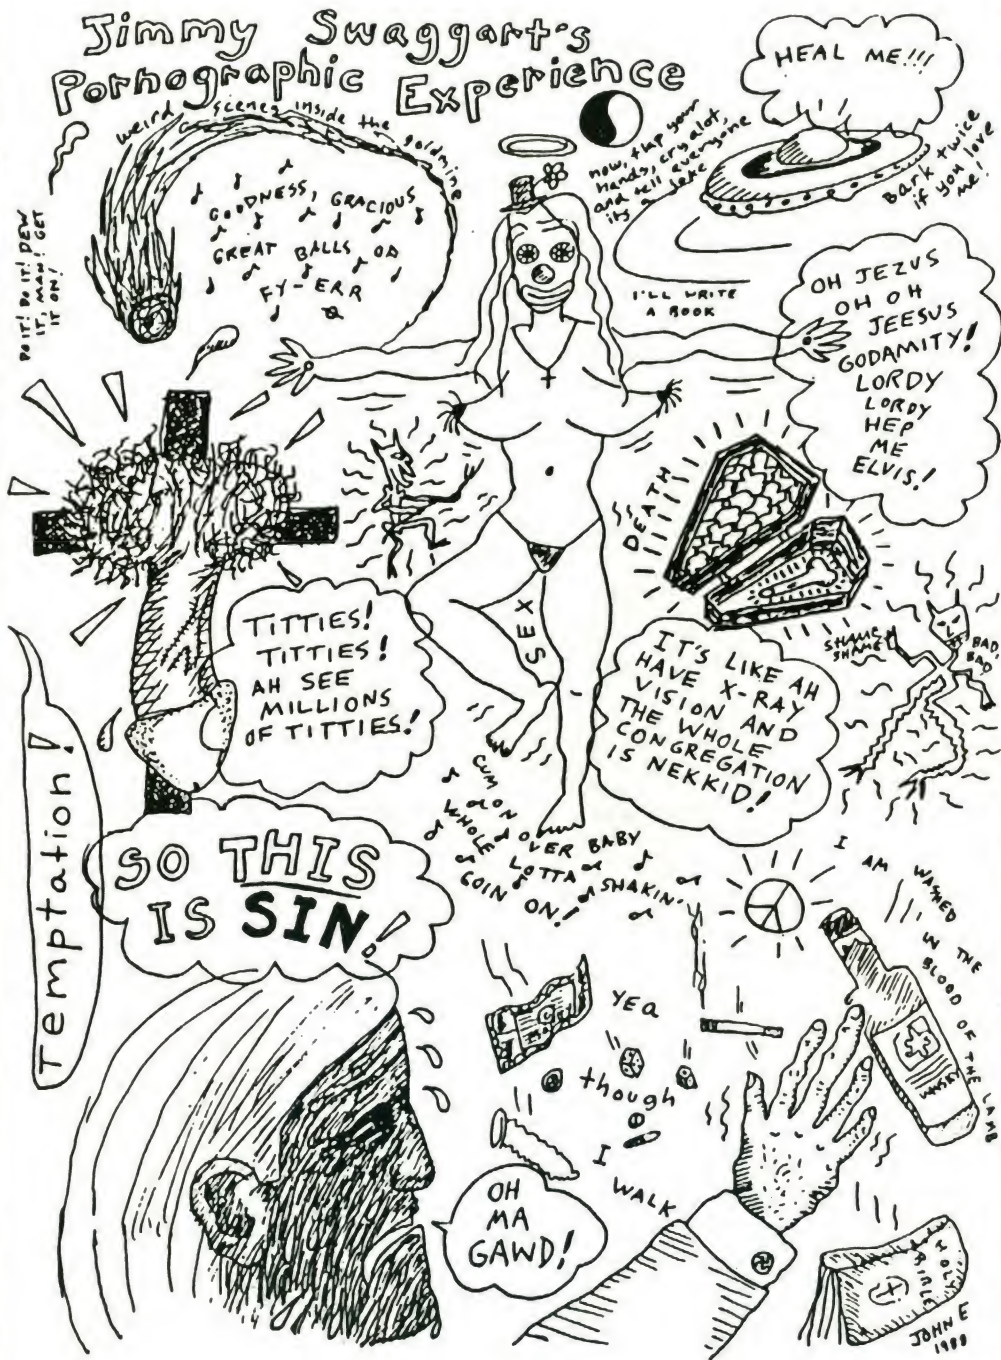 Jimmy Swaggart's
Pornographic Experience
HEAL ME!!!
weird scenes inside the goldmine
now, flap your
hands, cry alot,
and tell everyone
its a joke
bark twice
if you love
me!
DO IT! DO IT! DEW
IT, MAN! GET
IT ON!
GOODNESS, GRACIOUS
GREAT BALLS OA
FY-ERR
I'LL WRITE
A BOOK
OH JEZUS
OH OH
JEESUS
GODAMITY!
LORDY
LORDY
HEP
ME
ELVIS!
DEATH
SEX
TITTIES!
TITTIES!
AH SEE
MILLIONS
OF TITTIES!
IT'S LIKE AH
HAVE X-RAY
VISION AND
THE WHOLE
CONGREGATION
IS NEKKID!
SHAME
SHAME
BAD,
BAD
Temptation!
CUM
ON
OVER BABY
WHOLE
LOTTA
SHAKIN'
GOIN ON!
SO THIS
IS SIN!
I AM WASHED
IN THE
BLOOD OF THE LAMB
YEA
though
I
WALK
OH
MA
GAWD!
HOLY
BIBLE
JOHN E
1988